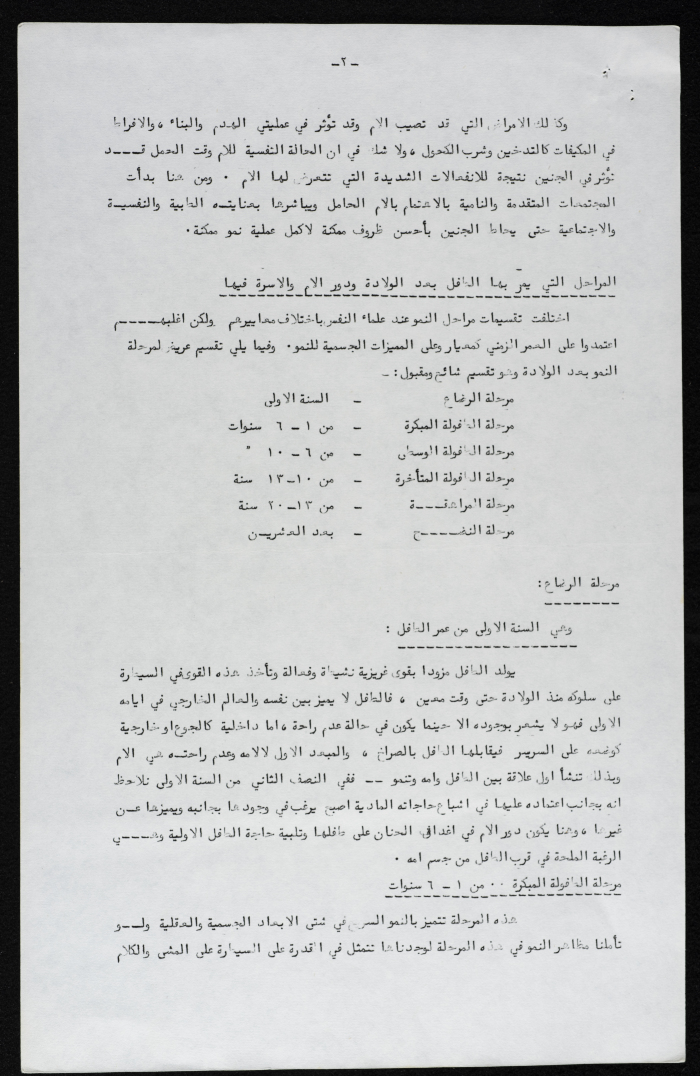 -٢-
وكذلك الامراض التي قد تصيب الام وقد تؤثر في عمليتي الهدم والبناء ، والافراط
في المكيفات كالتدخين وشرب الكحول ، ولا شك في ان الحالة النفسية للام وقت الحمل قـــد
تؤثر في الجنين نتيجة للانفعالات الشديدة التي تتعرض لها الام . ومن هنا بدأت
المجتمعات المتقدمة والنامية بالاهتمام بالام الحامل ويباشرها بعنايته الطبية والنفسية
والاجتماعية حتى يحاط الجنين بأحسن ظروف ممكنة لاكمل عملية نمو ممكنة .
المراحل التي يمر بها الطفل بعد الولادة ودور الام والاسرة فيها
اختلفت تقسيمات مراحل النمو عند علماء النفس باختلاف معاييرهم ولكن اغلبهـــم
اعتمدوا على العمر الزمني كمعيار وعلى المميزات الجسمية للنمو. وفيما يلي تقسيم عريض لمرحلة
النمو بعد الولادة وهو تقسيم شائع ومقبول : -
مرحلة الرضاع - السنة الاولى
مرحلة الطفولة المبكرة - من ١ - ٦ سنوات
مرحلة الطفولة الوسطى - من ٦ - ١٠ "
مرحلة الطفولة المتأخرة - من ١٠-١٣ سنة
مرحلة المراهقـــة - من ١٣-٢٠ سنة
مرحلة النضـــج - بعد العشريـن
مرحلة الرضاع :
وهي السنة الاولى من عمر الطفل :
يولد الطفل مزودا بقوى غريزية نشيطة وفعالة وتأخذ هذه القوى في السيطرة
على سلوكه منذ الولادة حتى وقت معين ، فالطفل لا يميز بين نفسه والعالم الخارجي في ايامه
الاولى فهو لا يشعر بوجوده الا حينما يكون في حالة عدم راحة ، اما داخلية كالجوع او خارجية
كوضعه على السرير فيقابلها الطفل بالصراخ ، والمبعد الاول لالامه وعدم راحته هي الام
وبذلك تنشأ اول علاقة بين الطفل وامه وتنمو -- ففي النصف الثاني من السنة الاولى نلاحظ
انه بجانب اعتماده عليها في اشباع حاجاته المادية اصبح يرغب في وجودها بجانبه ويميزها عـن
غيرها ، وهنا يكون دور الام في اغداق الحنان على طفلها وتلبية حاجة الطفل الاولية وهـــي
الرغبة الملحة في قرب الطفل من جسم امه .
مرحلة الطفولة المبكرة ٠٠ من ١ - ٦ سنوات
هذه المرحلة تتميز بالنمو السريع في شتى الابعاد الجسمية والعقلية ولـــو
تأملنا مظاهر النمو في هذه المرحلة لوجدناها تتمثل في القدرة على السيطرة على المشى والكلام